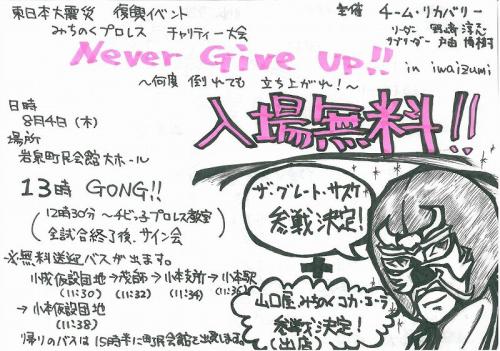 東日本大震災 復興イベント
みちのくプロレス チャリティー大会
主催 チーム・リカバリー
リーダー 野崎
サブリーダー 戸田
Never Give up!! in iwaizumi
～何度 倒れても 立ち上がれ！～
日時
8月4日(木)
場所
岩泉町民会館大ホール
入場無料!!
13時 GONG!!
(12時30分～チビっ子プロレス教室
全試合終了後、サイン会)
※無料送迎バスが出ます。
小成仮設団地→茂師→小本支所→小本駅
(11:30) (11:32) (11:34) (11:36)
→小本仮設団地
(11:38)
帰りのバスは15時半に町民会館を出発します。
ザ・グレート・サスケ
参戦決定！
+
山口屋 みちのくコカ・コーラ
参戦決定！
(出店)